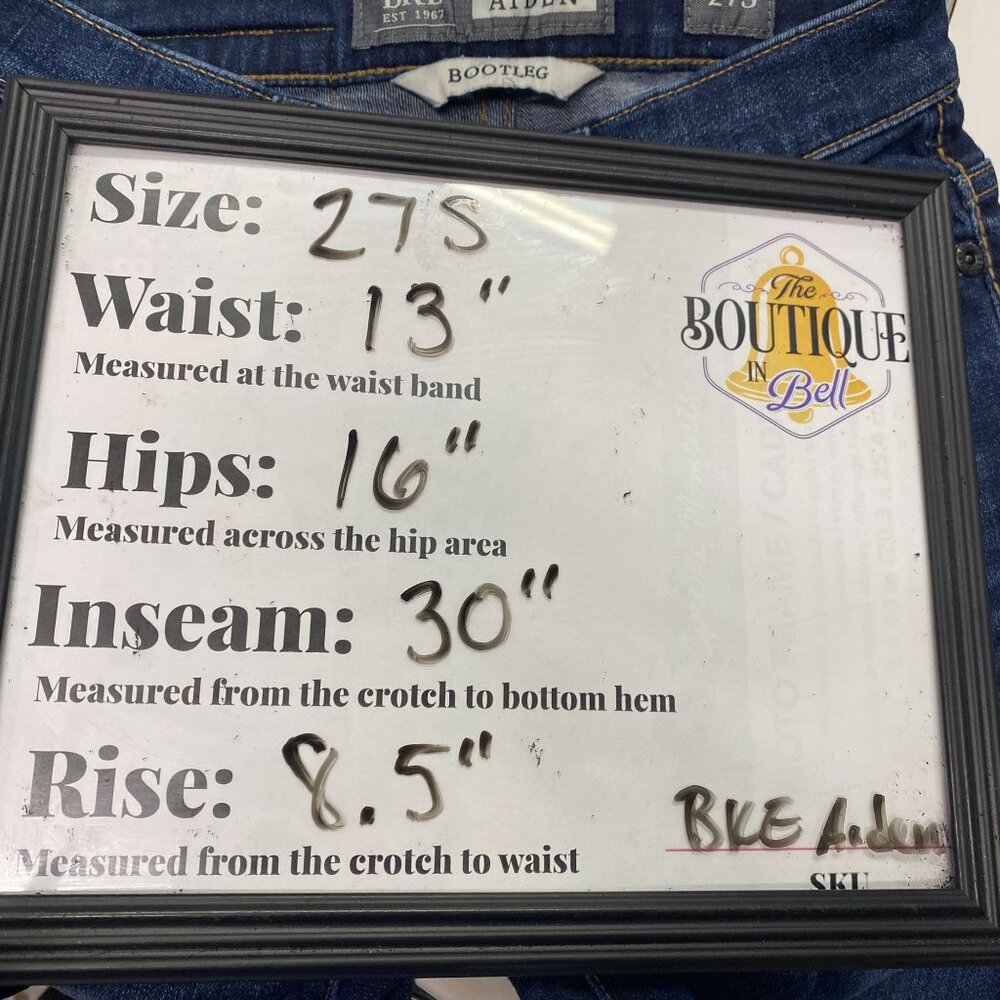 BKE
EST 1967
AIDEN
27S
BOOTLEG
Size: 27S
Waist: 13"
Measured at the waist band
Hips: 16"
Measured across the hip area
Inseam: 30"
Measured from the crotch to bottom hem
Rise: 8.5"
Measured from the crotch to waist
The
BOUTIQUE
IN
Bell
BKE Aiden
SKU